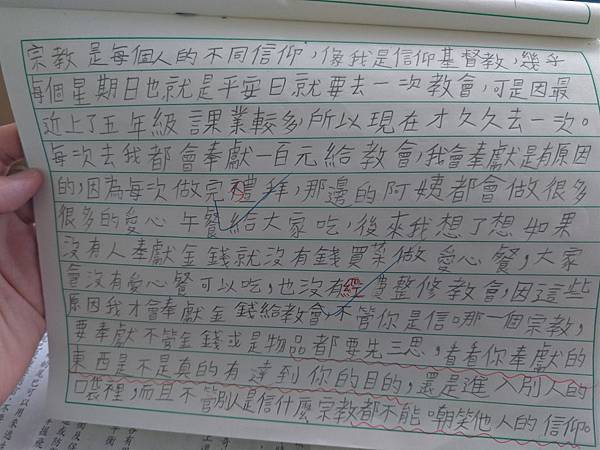 宗教是每個人的不同信仰，像我是信仰基督教，幾乎
每個星期日也就是平安日就要去一次教會，可是因最
近上了五年級課業較多，所以現在才久久去一次。
每次去我都會奉獻一百元給教會，我會奉獻是有原因
的，因為每次做完禮拜，那邊的阿姨都會做很多
很多的愛心午餐給大家吃，後來我想了想如果
沒有人奉獻金錢就沒有錢買菜做愛心餐，大家
會沒有愛心餐可以吃，也沒有經費整修教會，因這些
原因我才會奉獻金錢給教會，不管你是信哪一個宗教，
要奉獻不管金錢或是物品都要先三思，看看你奉獻的
東西是不是真的有達到你的目的，還是進入別人的
口袋裡，而且不管別人是信什麼宗教都不能嘲笑他人的信仰。